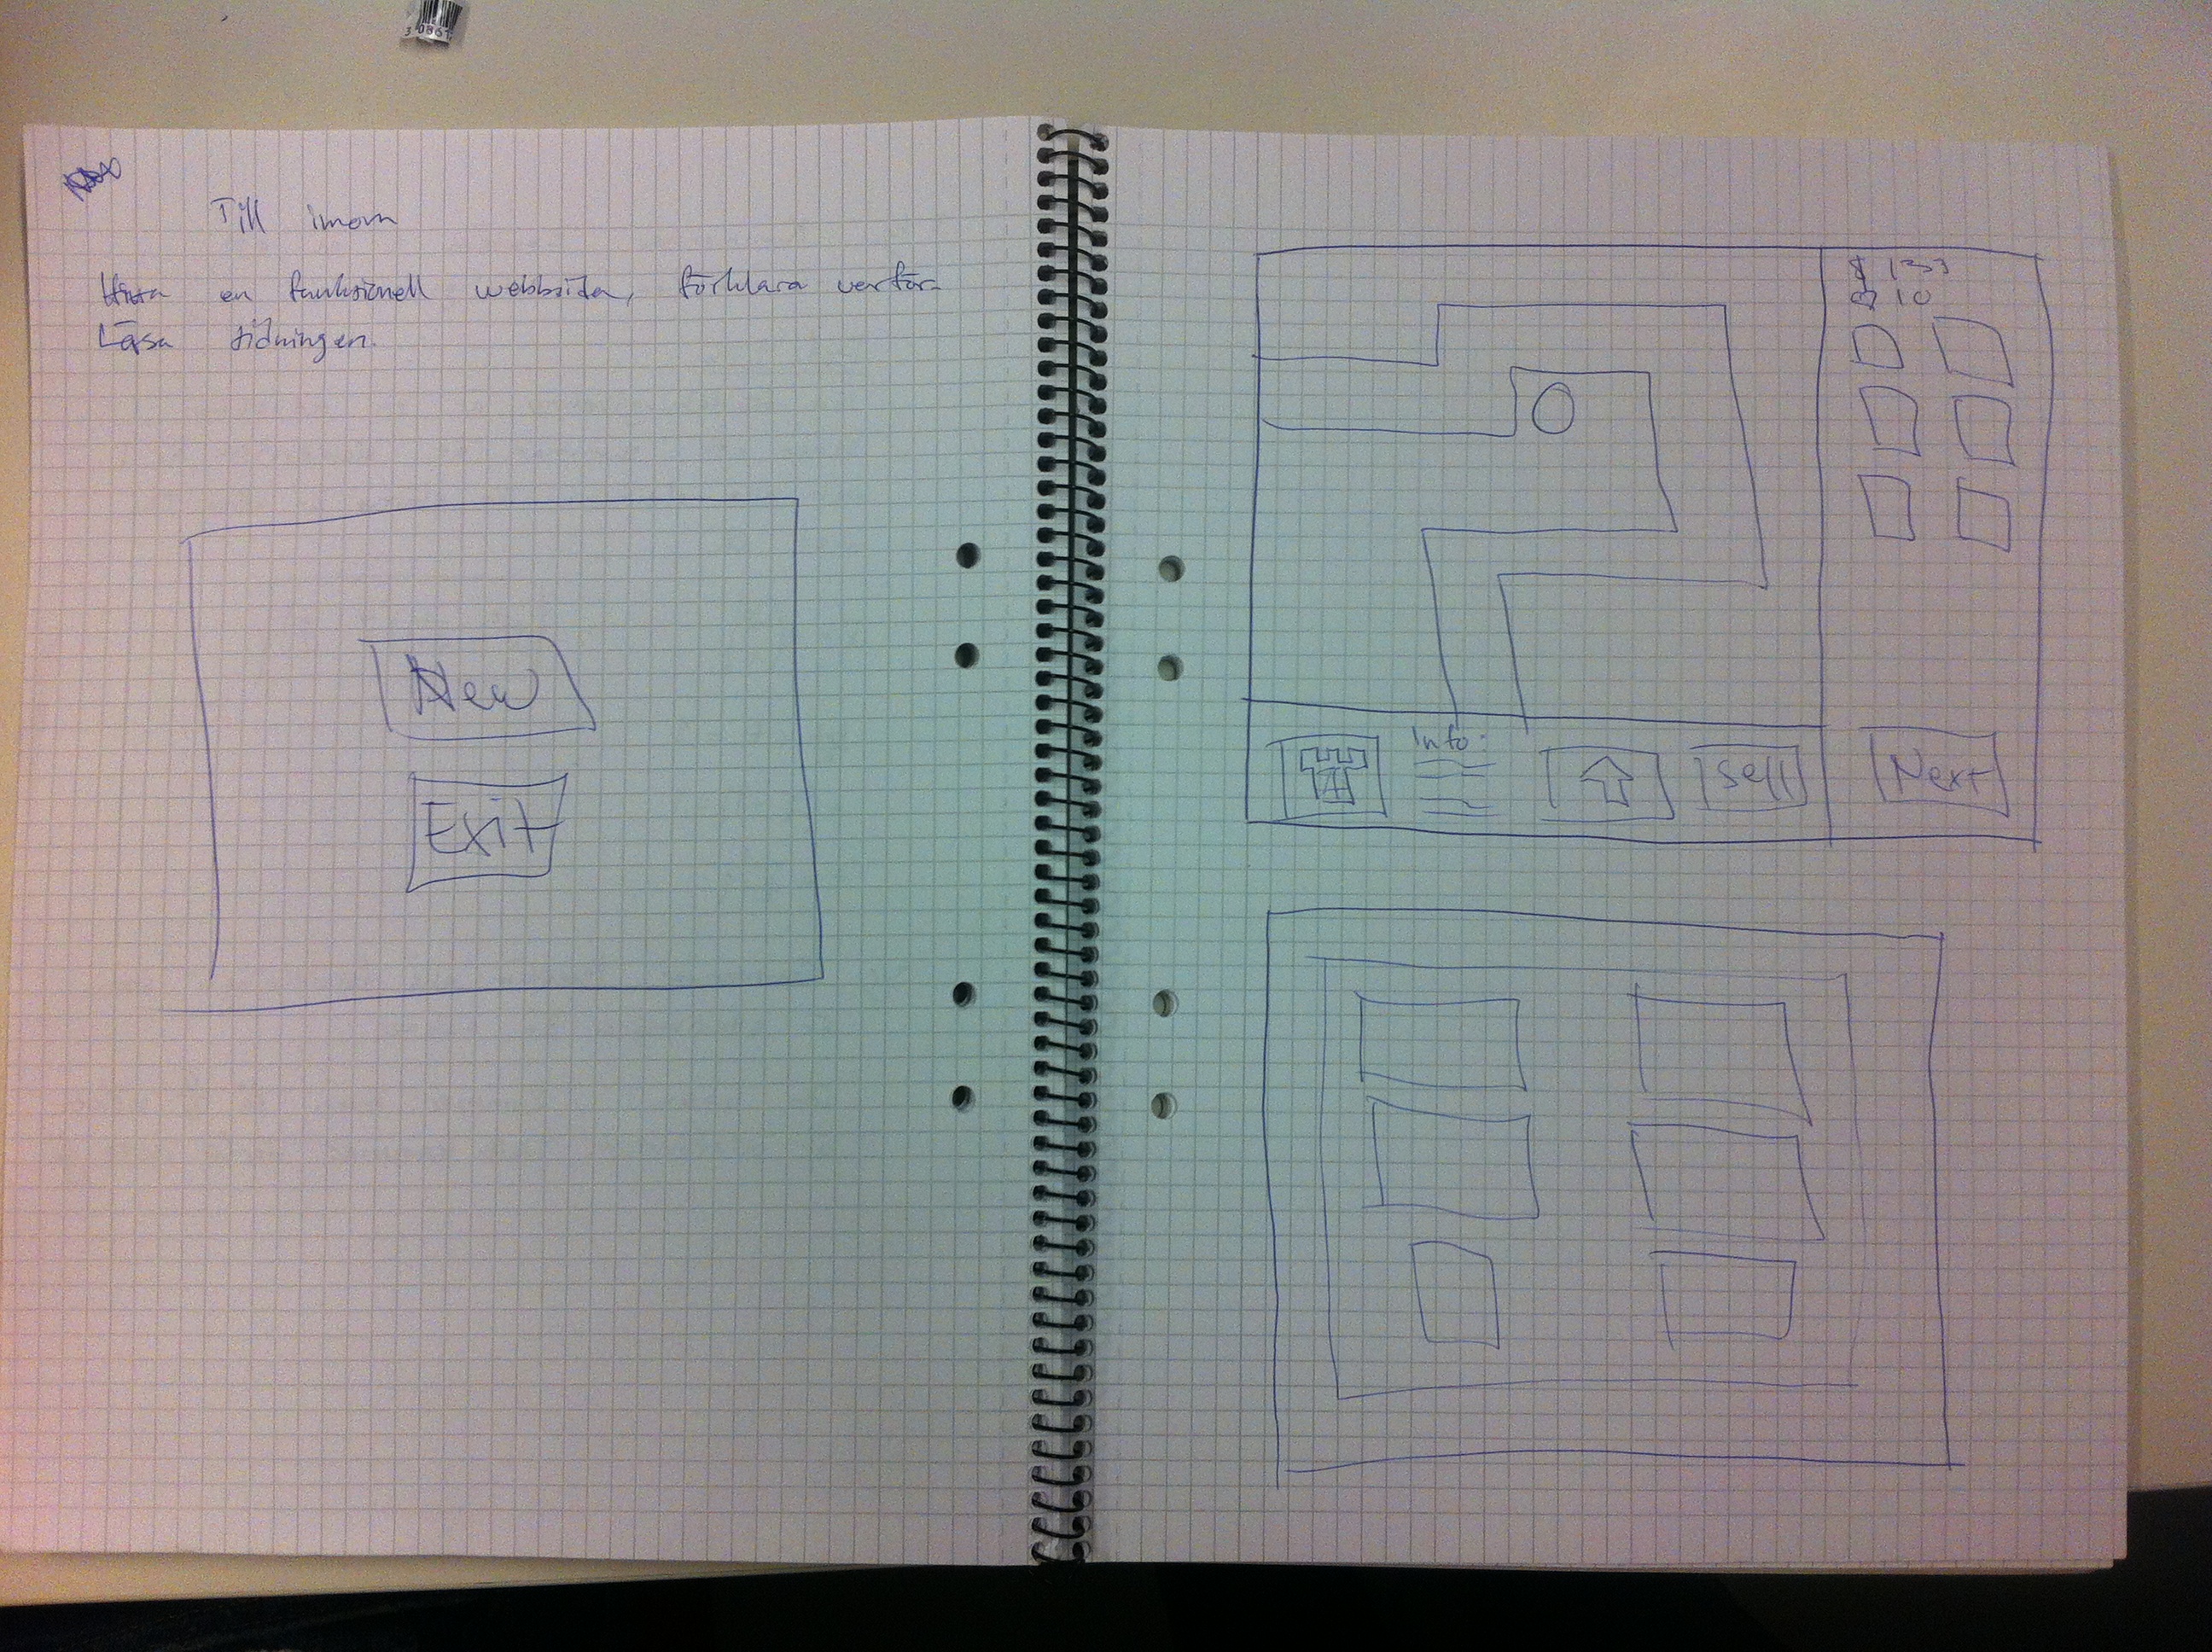 Till imorn
Hitta en funktionell webbsida, förklara varför
Läsa tidningen.
New
Exit
$ 133
10
Info:
Sell
Next